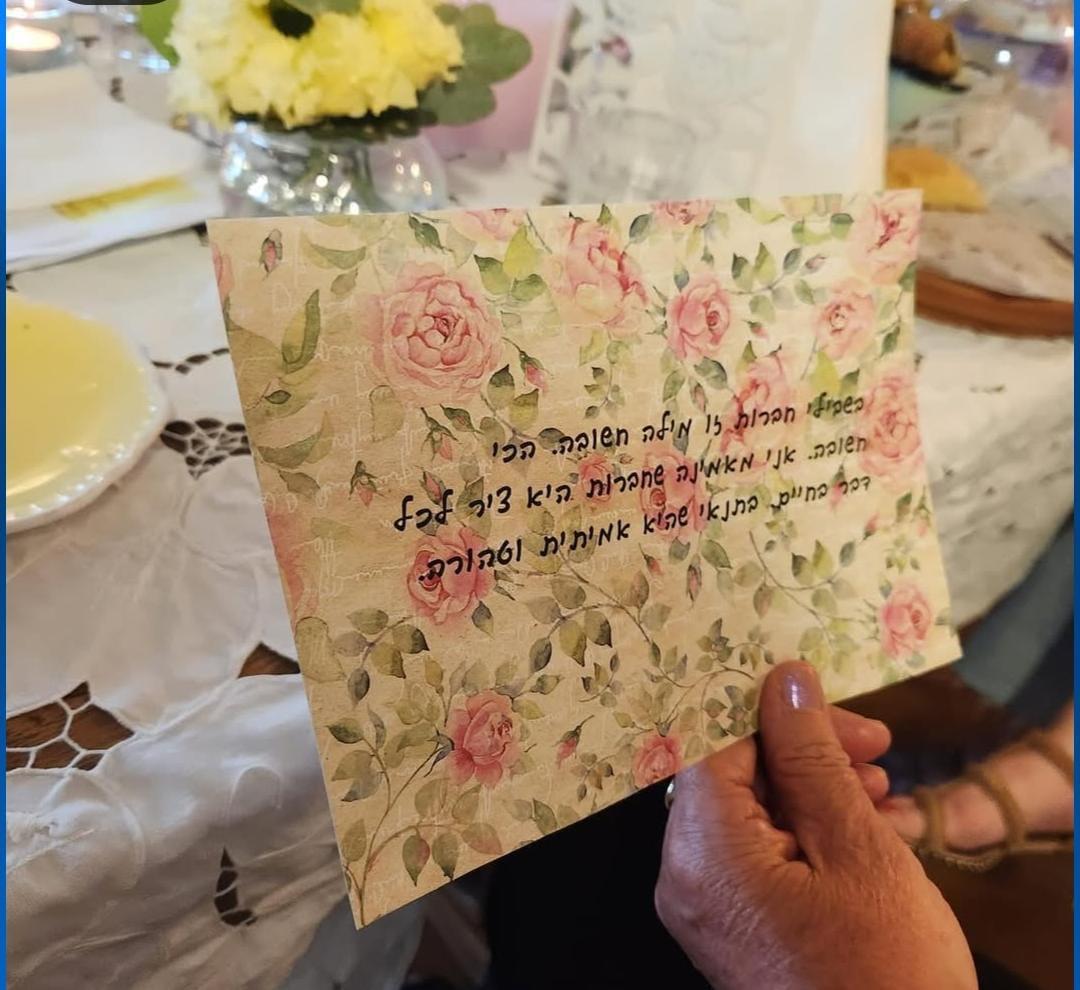 בשבילי חברות זו מילה חשובה. הכי
חשובה. אני מאמינה שחברות היא ציר לכל
דבר בחיים, בתנאי שהיא אמיתית וטהורה.